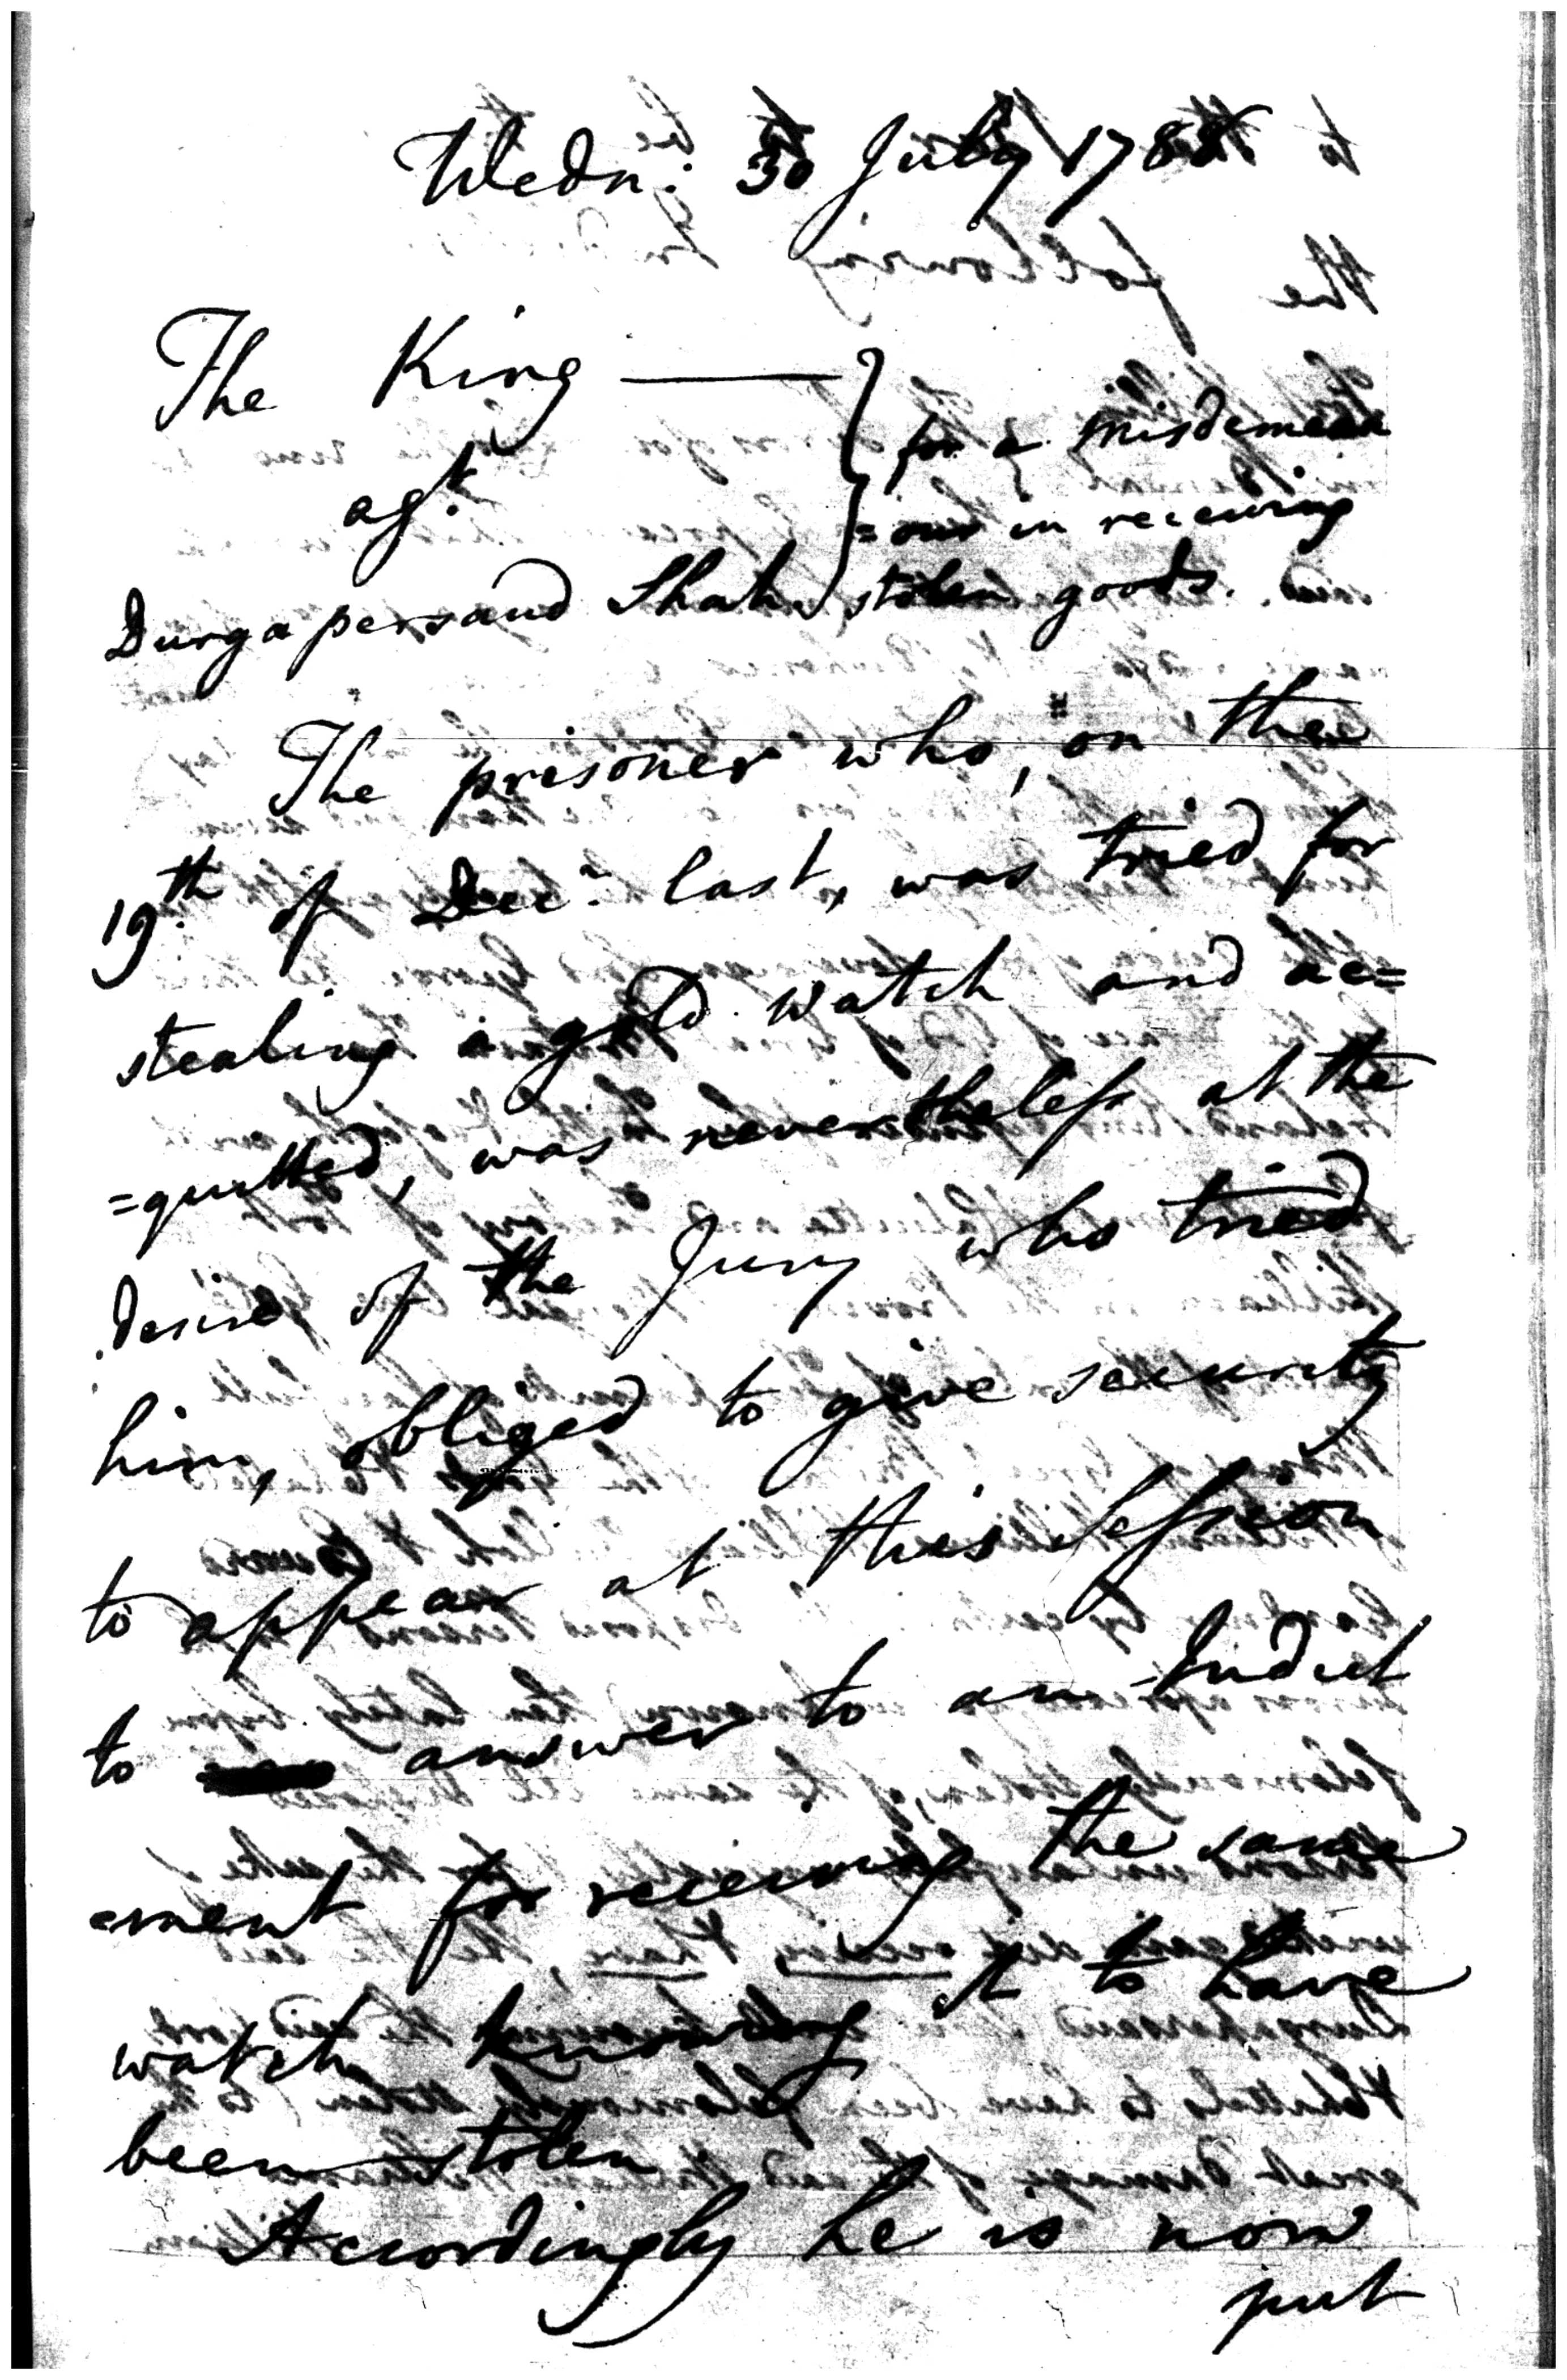 Wedn: 30 July 1788
The King ——
agt.
Durgapersaud Shah
for a misdemean
=our in receiving
stolen goods.
The prisoner who, on the
19th of Decr. last, was tried for
stealing a gold watch and ac=
=quitted, was nevertheless at the
desire of the Jury who tried
him, obliged to give security
to appear at this Session
to answer to an Indict
=ment for receiving the same
watch knowing it to have
been stolen
Accordingly he is now
put